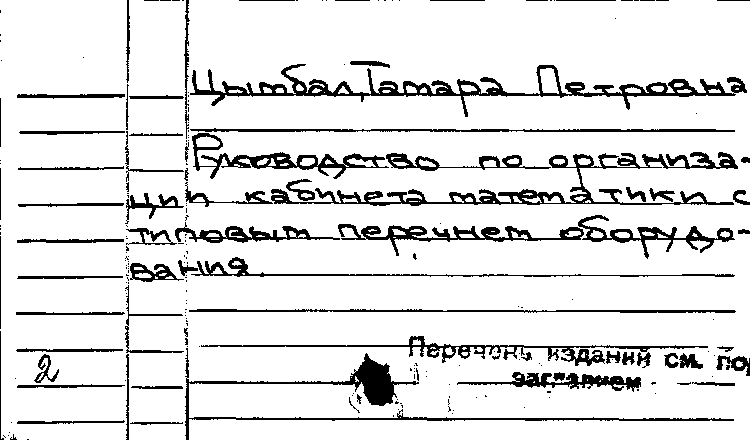 Цымбал, Тамара Петровна
Руководство по организа-
ции кабинета математики с
типовым перечнем оборудо-
вания.
Перечень изданий см. под
заглавием
2